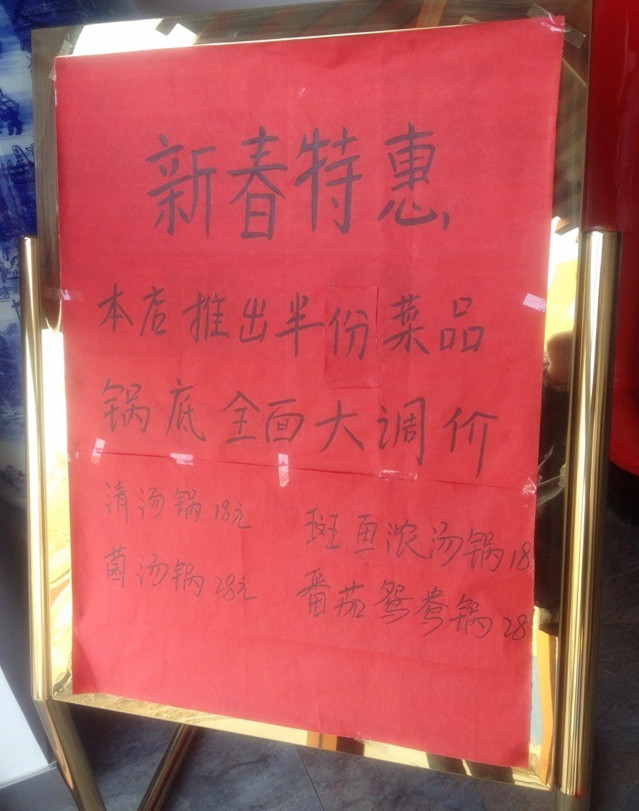 新春特惠,
本店推出半份菜品
锅底全面大调价
清汤锅18元 斑鱼浓汤锅18
菌汤锅28元 番茄鸳鸯锅28